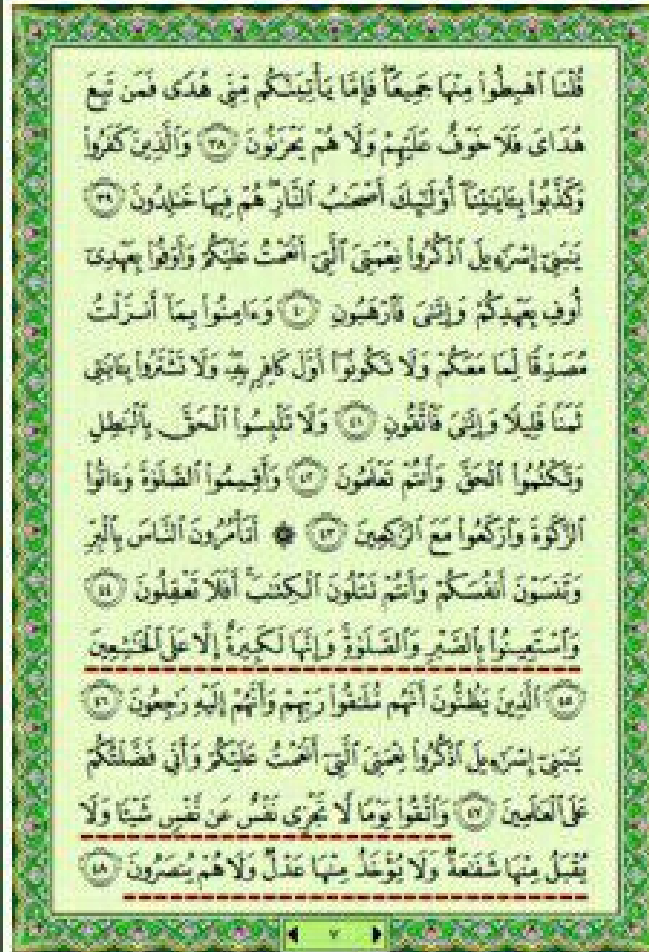 قُلْنَا ٱهْبِطُوا۟ مِنْهَا جَمِيعًا ۖ فَإِمَّا يَأْتِيَنَّكُم مِّنِّى هُدًى فَمَن تَبِعَ
هُدَاىَ فَلَا خَوْفٌ عَلَيْهِمْ وَلَا هُمْ يَحْزَنُونَ ٣٨ وَٱلَّذِينَ كَفَرُوا۟
وَكَذَّبُوا۟ بِـَٔايَـٰتِنَآ أُو۟لَـٰٓئِكَ أَصْحَـٰبُ ٱلنَّارِ ۖ هُمْ فِيهَا خَـٰلِدُونَ ٣٩
يَـٰبَنِىٓ إِسْرَٰٓءِيلَ ٱذْكُرُوا۟ نِعْمَتِىَ ٱلَّتِىٓ أَنْعَمْتُ عَلَيْكُمْ وَأَوْفُوا۟ بِعَهْدِىٓ
أُوفِ بِعَهْدِكُمْ وَإِيَّـٰىَ فَٱرْهَبُونِ ٤٠ وَءَامِنُوا۟ بِمَآ أَنزَلْتُ
مُصَدِّقًا لِّمَا مَعَكُمْ وَلَا تَكُونُوٓا۟ أَوَّلَ كَافِرٍۭ بِهِۦ ۖ وَلَا تَشْتَرُوا۟ بِـَٔايَـٰتِى
ثَمَنًا قَلِيلًا وَإِيَّـٰىَ فَٱتَّقُونِ ٤١ وَلَا تَلْبِسُوا۟ ٱلْحَقَّ بِٱلْبَـٰطِلِ
وَتَكْتُمُوا۟ ٱلْحَقَّ وَأَنتُمْ تَعْلَمُونَ ٤٢ وَأَقِيمُوا۟ ٱلصَّلَوٰةَ وَءَاتُوا۟
ٱلزَّكَوٰةَ وَٱرْكَعُوا۟ مَعَ ٱلرَّٰكِعِينَ ٤٣ ۞ أَتَأْمُرُونَ ٱلنَّاسَ بِٱلْبِرِّ
وَتَنسَوْنَ أَنفُسَكُمْ وَأَنتُمْ تَتْلُونَ ٱلْكِتَـٰبَ ۚ أَفَلَا تَعْقِلُونَ ٤٤
وَٱسْتَعِينُوا۟ بِٱلصَّبْرِ وَٱلصَّلَوٰةِ ۚ وَإِنَّهَا لَكَبِيرَةٌ إِلَّا عَلَى ٱلْخَـٰشِعِينَ
٤٥ ٱلَّذِينَ يَظُنُّونَ أَنَّهُم مُّلَـٰقُوا۟ رَبِّهِمْ وَأَنَّهُمْ إِلَيْهِ رَٰجِعُونَ ٤٦
يَـٰبَنِىٓ إِسْرَٰٓءِيلَ ٱذْكُرُوا۟ نِعْمَتِىَ ٱلَّتِىٓ أَنْعَمْتُ عَلَيْكُمْ وَأَنِّى فَضَّلْتُكُمْ
عَلَى ٱلْعَـٰلَمِينَ ٤٧ وَٱتَّقُوا۟ يَوْمًا لَّا تَجْزِى نَفْسٌ عَن نَّفْسٍ شَيْـًٔا وَلَا
يُقْبَلُ مِنْهَا شَفَـٰعَةٌ وَلَا يُؤْخَذُ مِنْهَا عَدْلٌ وَلَا هُمْ يُنصَرُونَ ٤٨
٧